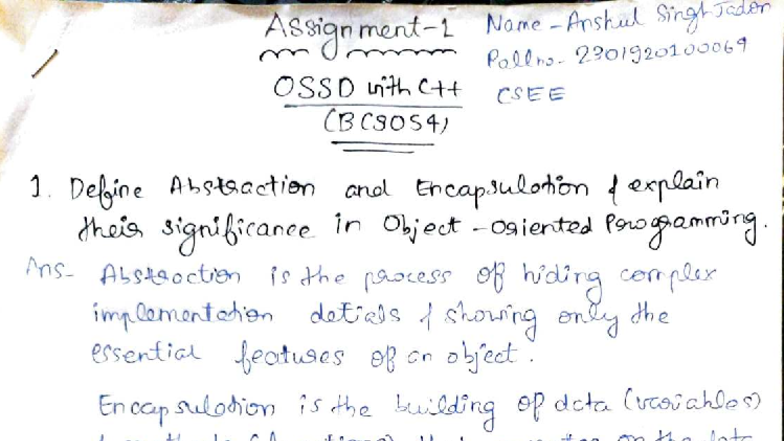 Assignment-1
Name - Anshul Singh Jadon
Rollno. - 2301920100069
OSSD with C++
CSEE
(BCS054)
1. Define Abstraction and Encapsulation & explain
their significance in Object-oriented Programming.
Ans- Abstraction is the process of hiding complex
implementation detials & showing only the
essential features of an object.
Encapsulation is the building of data (variables)